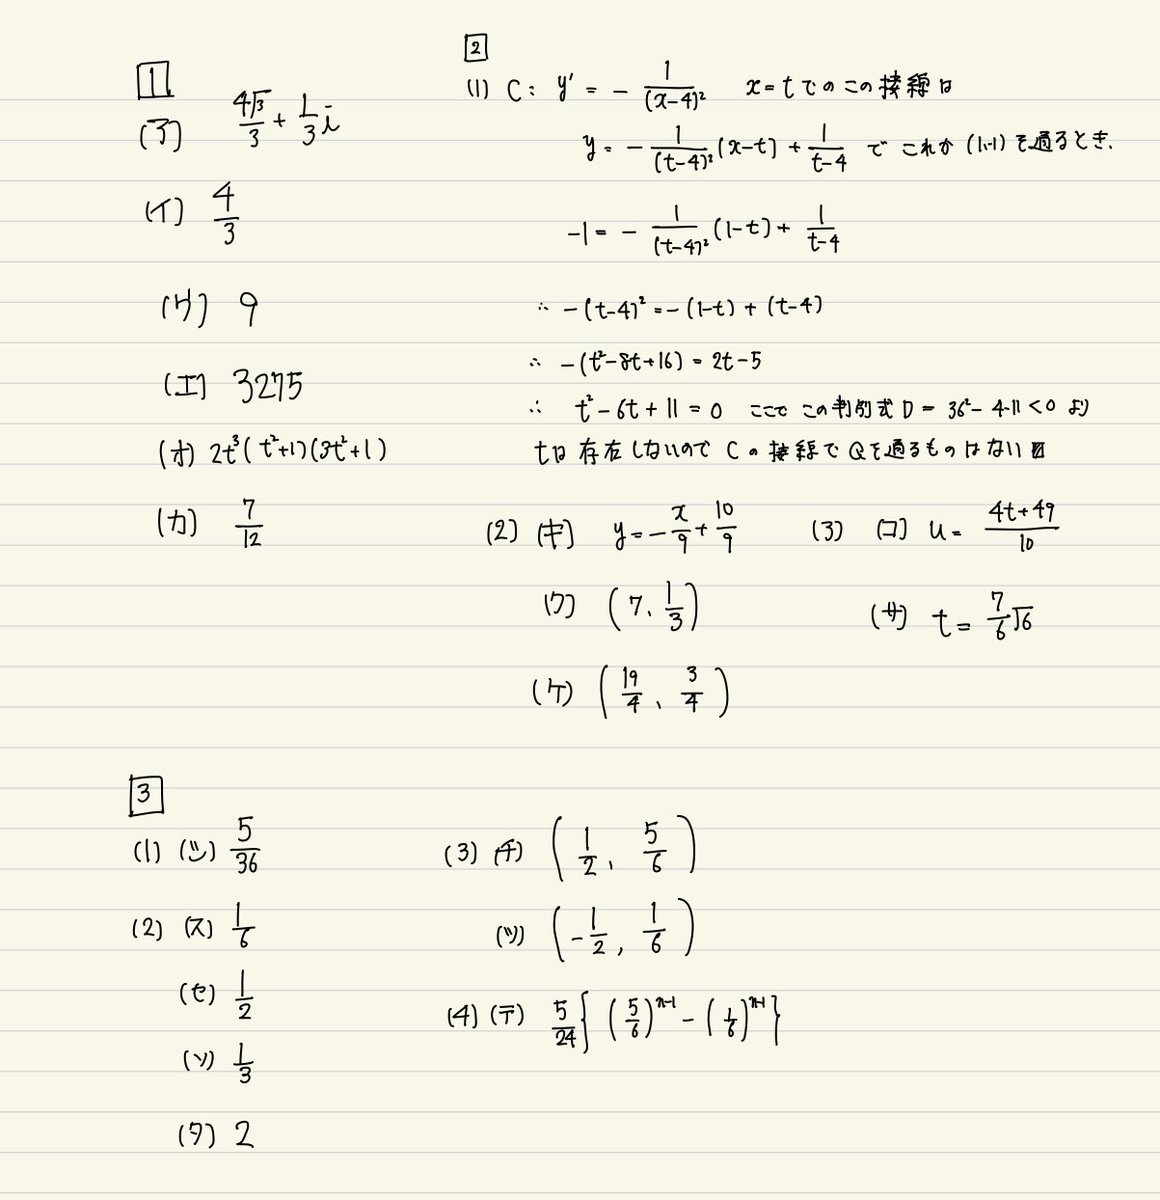 1
(ア) 4√3/3 + 1/3 i
(イ) 4/3
(ウ) 9
(エ) 3275
(オ) 2t³(t²+1)(3t²+1)
(カ) 7/12
2
(1) C: y' = - 1/(x-4)² x=tでのこの接線は
y = - 1/(t-4)² (x-t) + 1/t-4 で これが (1,-1) を通るとき、
-1 = - 1/(t-4)² (1-t) + 1/t-4
∴ -(t-4)² = -(1-t) + (t-4)
∴ -(t²-8t+16) = 2t-5
∴ t²-6t+11 = 0 ここで この判別式 D = 36²-4・11 < 0 より
tは存在しないので Cの接線で Qを通るものはない
(2) (キ) y = -x/9 + 10/9
(ク) (7、1/3)
(ケ) (19/4、3/4)
(3) (コ) u = 4t+49/10
(サ) t = 7/6 √6
3
(1) (シ) 5/36
(2) (ス) 1/6
(セ) 1/2
(ソ) 1/3
(タ) 2
(3) (チ) (1/2, 5/6)
(ツ) (-1/2, 1/6)
(4) (テ) 5/24 {(5/6)ⁿ⁻¹ - (1/6)ⁿ⁻¹}